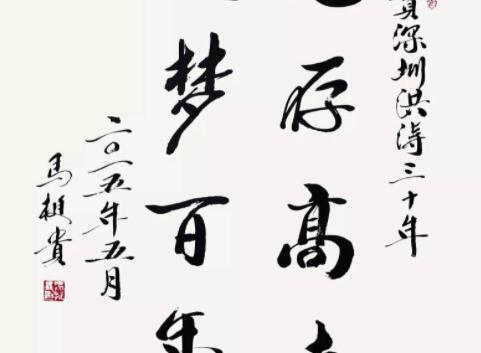 深圳洪涛三十年
存高
梦百年
二〇一五年五月
馬挺貴